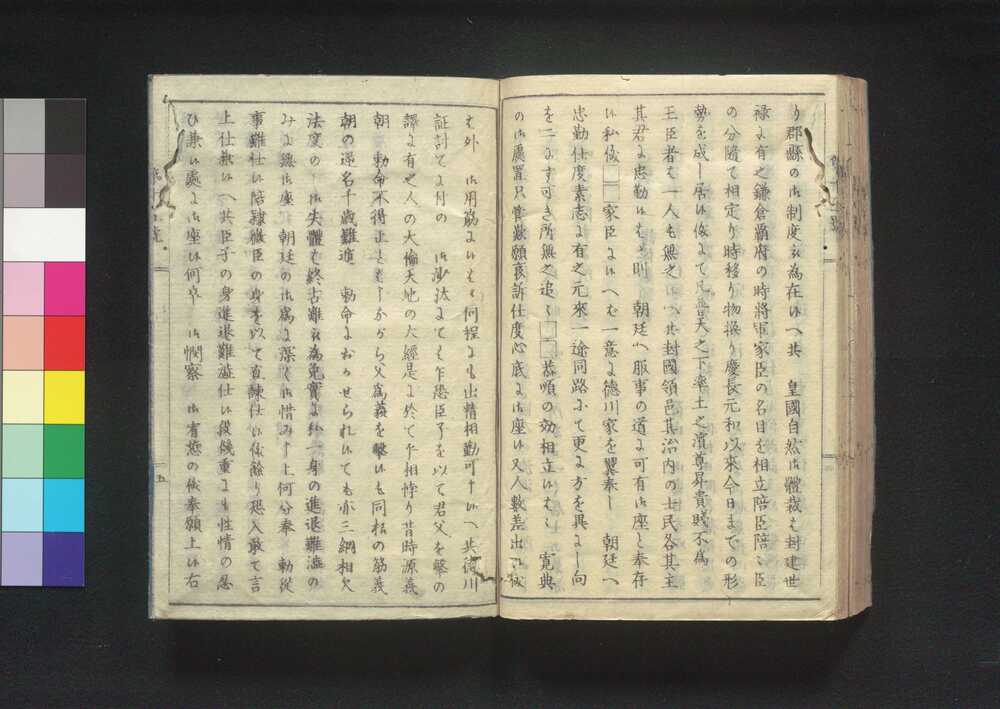 り郡縣の御制度被為在候へ共　皇國自然御體裁も封建世
禄に有之鎌倉覇府の時將軍家臣の名目を相立陪臣陪々臣
の分隨て相定り時移り物換り慶長元和以來今日までの形
勢を成し居候儀にて凡普天之下率土之濱尊卑貴賤不為
王臣者も一人も無之候へ共封國領邑其治内の士民各其主
其君に忠勤候も則　朝廷へ服事の道に可有御座と奉存
候私儀□□家臣に候へは一意に德川家を翼奉し　朝廷へ
忠勤仕度素志に有之元來一途同路にて更に方を異にし向
を二にす可き所無之追々□□恭順の効相立候はゝ　寛典
の御處置只管歎願哀訴仕度心底に御座候又人數差出候儀
も外　御用筋に候はゝ何程にも出精相勤可申候へ共德川
征討てふ付の　御沙汰にては乍恐臣子を以て君父を撃の
譯に有之人の大倫天地の大經是に於て乍相悖り昔時源義
朝　勅命不得止とし乍から父為義を撃候も同私の筋義
朝の逆名千歳難遁　勅命におゐせられ候ても亦三綱相欠
法度の　御失體も終古難被為免實に私一身の進退難澁の
みに無御座　朝廷の御為に深く御惜み申上何分奉　勅從
事難仕候陪隷微臣の身を以て直諫仕候儀餘り恐入敢て言
上仕兼候へ共臣子の身進退難澁仕候段幾重にも性情の忍
ひ兼候處に御座候何卒　御憫察　御宥恕の儀奉願上候右
五